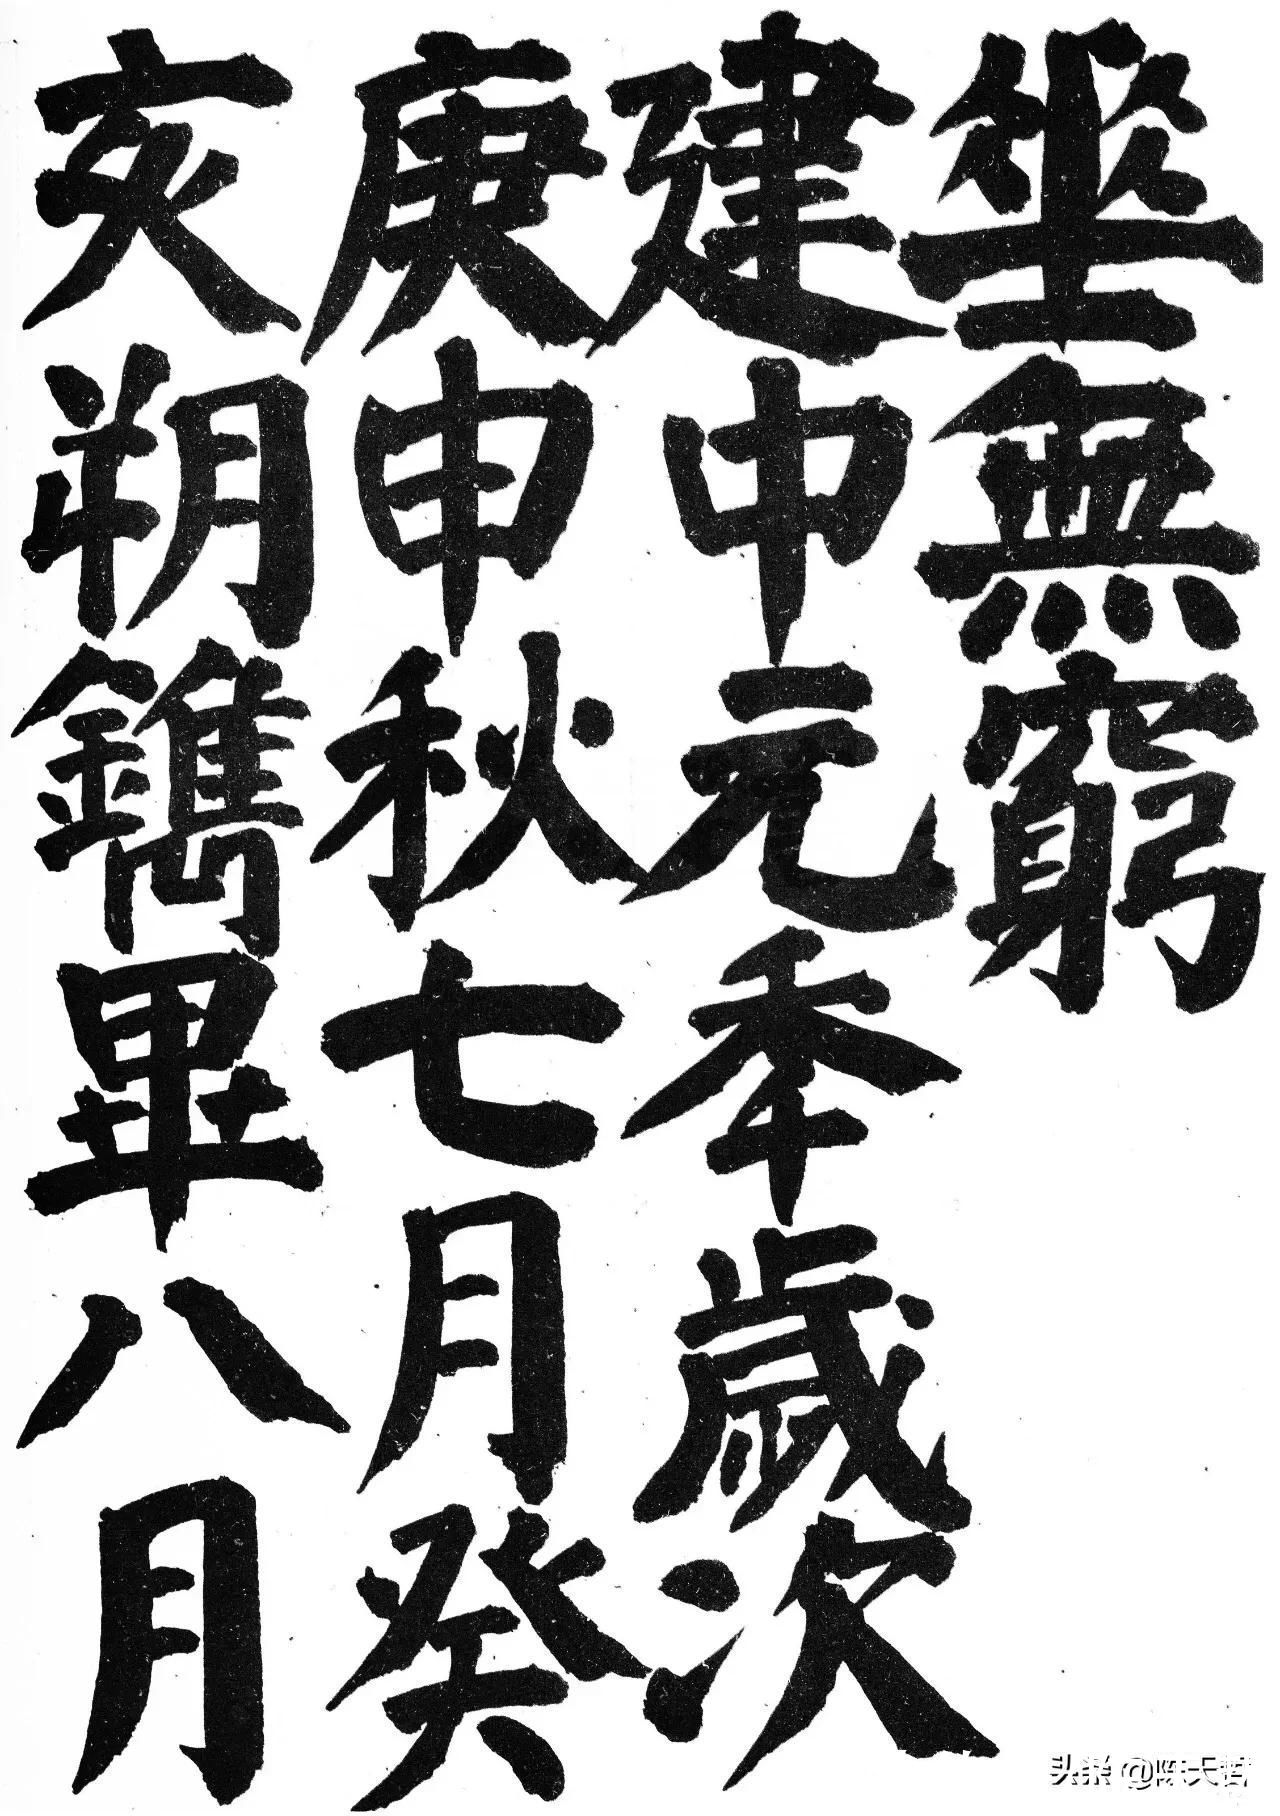 垂無窮
建中元秊歲次
庚申秋七月癸
亥朔鐫畢八月
头条 @陈天哲